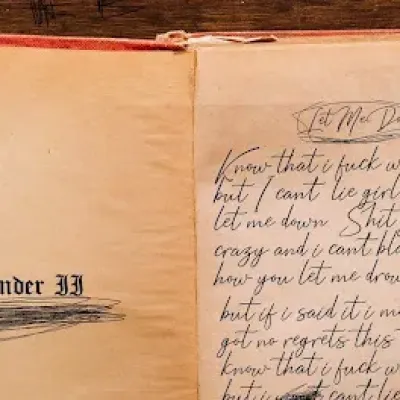 nder II
Let Me Do
Know that i fuck w
but I cant lie girl
let me down Shit
crazy and i cant bla
how you let me drow
but if i said it i m
got no regrets this
know that i fuck w
but i cant lie